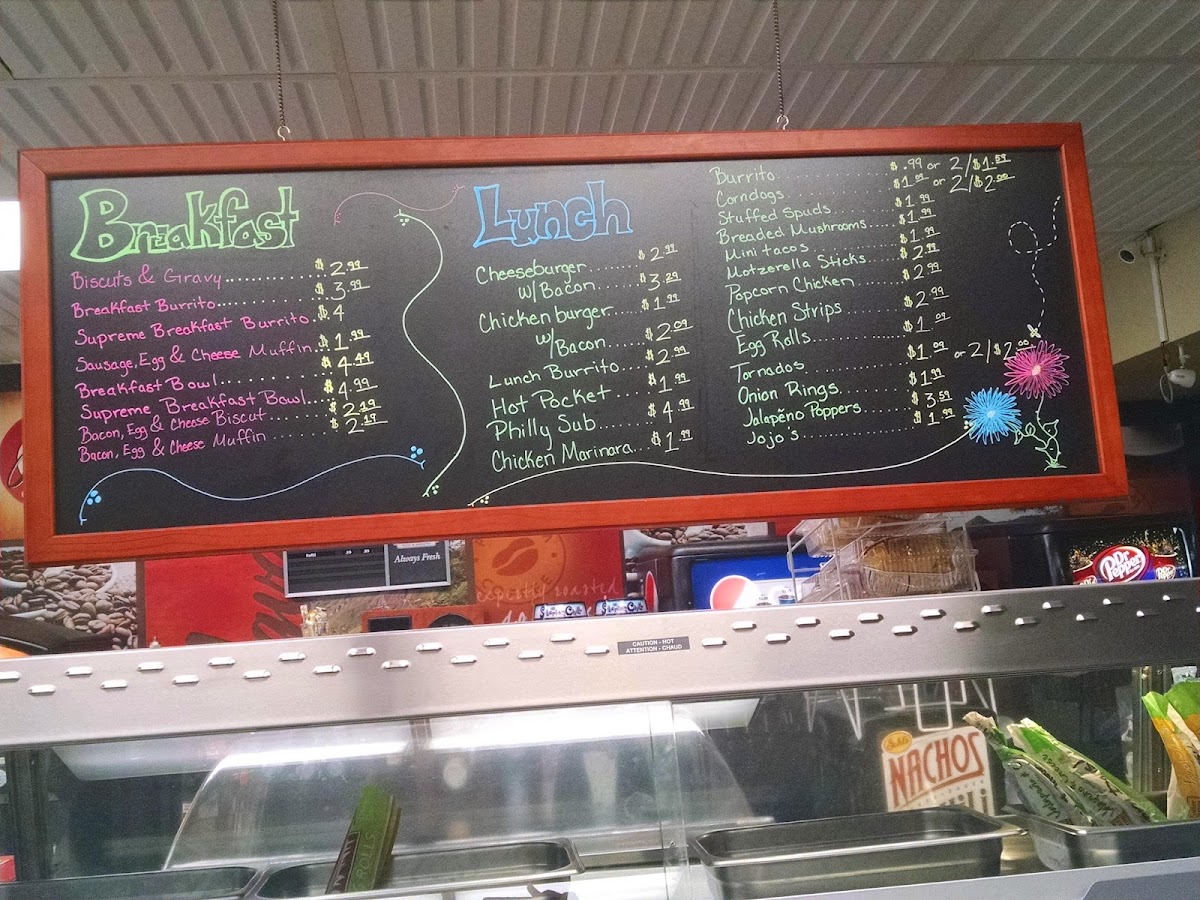 Breakfast
Biscuts & Gravy.......... $2.99
Breakfast Burrito.......... $3.99
Supreme Breakfast Burrito. $4
Sausage, Egg & Cheese Muffin.. $1.99
Breakfast Bowl.......... $4.49
Supreme Breakfast Bowl... $4.99
Bacon, Egg & Cheese Biscut...... $2.19
Bacon, Egg & Cheese Muffin...... $2.19
Lunch
Cheeseburger...... $2.99
w/Bacon..... $3.29
Chickenburger.... $1.99
w/Bacon.... $2.09
Lunch Burrito... $2.99
Hot Pocket..... $1.99
Philly Sub....... $4.99
Chicken Marinara... $1.99
Burrito.......... $.99 or 2/$1.59
Corndogs.......... $1.09 or 2/$2.00
Stuffed Spuds....... $1.99
Breaded Mushrooms.... $1.99
Mini tacos.......... $1.99
Motzerella Sticks.... $2.99
Popcorn Chicken...... $2.99
Chicken Strips....... $2.99
Egg Rolls.......... $1.09
Tornados.......... $1.09 or 2/$2.00
Onion Rings....... $1.99
Jalapeño Poppers..... $3.59
Jojo's............ $1.99
Always Fresh
roasted
CAUTION - HOT
ATTENTION - CHAUD
Dr Pepper
NACHOS